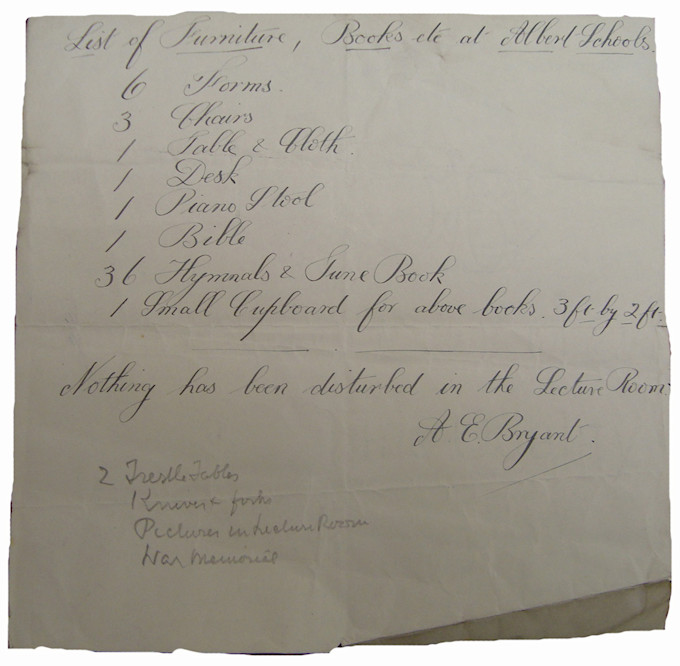 List of Furniture, Books etc at Albert Schools.
6 Forms.
3 Chairs
1 Table & Cloth.
1 Desk
1 Piano Stool
1 Bible
36 Hymnals & Tune Book
1 Small Cupboard for above books. 3ft. by 2ft.
Nothing has been disturbed in the Lecture Room
A. E. Bryant.
2 Trestle Tables
Knives & forks
Pictures in Lecture Room
War Memorial